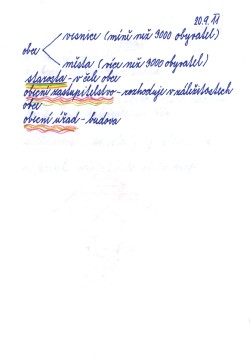 20.9.11
vesnice (méně než 3000 obyvatel)
obce
města (více než 3000 obyvatel)
starosta - v čele obce
obecní zastupitelstvo - rozhoduje v náležitostech
obce
obecní úřad - budova